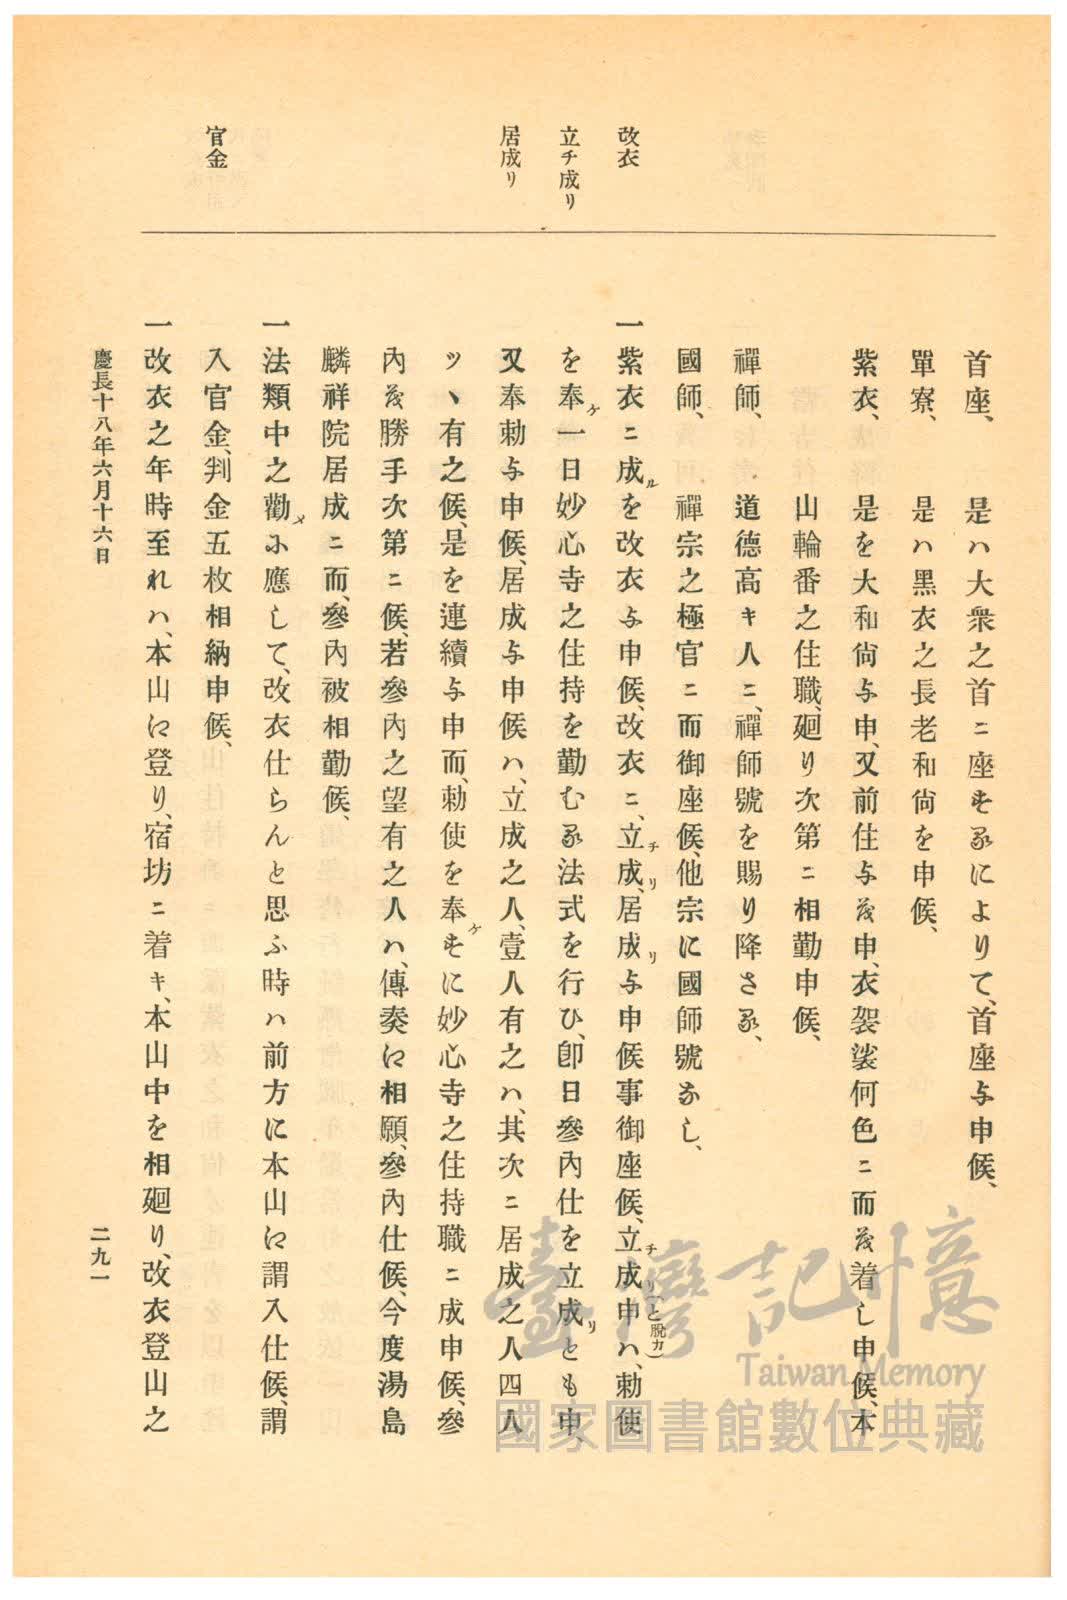 改衣
立チ成リ
居成リ
官金
首座、　是ハ大衆之首ニ座するによりて、首座与申候、
單寮、　是ハ黑衣之長老和尙を申候、
紫衣、　是を大和尙与申、又前住与茂申、衣袈裟何色ニ而茂着し申候、本
山輪番之住職、廻り次第ニ相勤申候、
禪師、　道德高キ人ニ、禪師號を賜り降さる、
國師、　禪宗之極官ニ而御座候、他宗に國師號なし、
一紫衣ニ成ルを改衣与申候、改衣ニ、立チ成リ、居成リ与申候事御座候、立チ成リ(と脫カ)申ハ、勅使
を奉ケ一日妙心寺之住持を勤むる法式を行ひ、卽日參內仕を立成リとも申、
又奉勅与申候、居成与申候ハ、立成之人、壹人有之ハ、其次ニ居成之人四人
ツヽ有之候、是を連續与申而、勅使を奉ケすに妙心寺之住持職ニ成申候、參
內茂勝手次第ニ候、若參內之望有之人ハ、傳奏江相願、參內仕候、今度湯島
麟祥院居成ニ而、參內被相勤候、
一法類中之勸メニ應して、改衣仕らんと思ふ時ハ前方に本山江謂入仕候、謂
入官金、判金五枚相納申候、
一改衣之年時至れハ、本山江登り、宿坊ニ着キ、本山中を相廻り、改衣登山之
慶長十八年六月十六日
二九一
臺灣記憶
Taiwan Memory
國家圖書館數位典藏